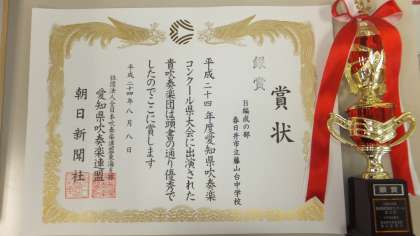 賞状
銀賞
B編成の部
春日井市立藤山台中学校
平成二十四年度愛知県吹奏楽
コンクール県大会に出演された
貴吹奏楽団は頭書の通り優秀で
したのでここに賞します
平成二十四年八月八日
愛知県吹奏楽連盟
朝日新聞社
銀賞